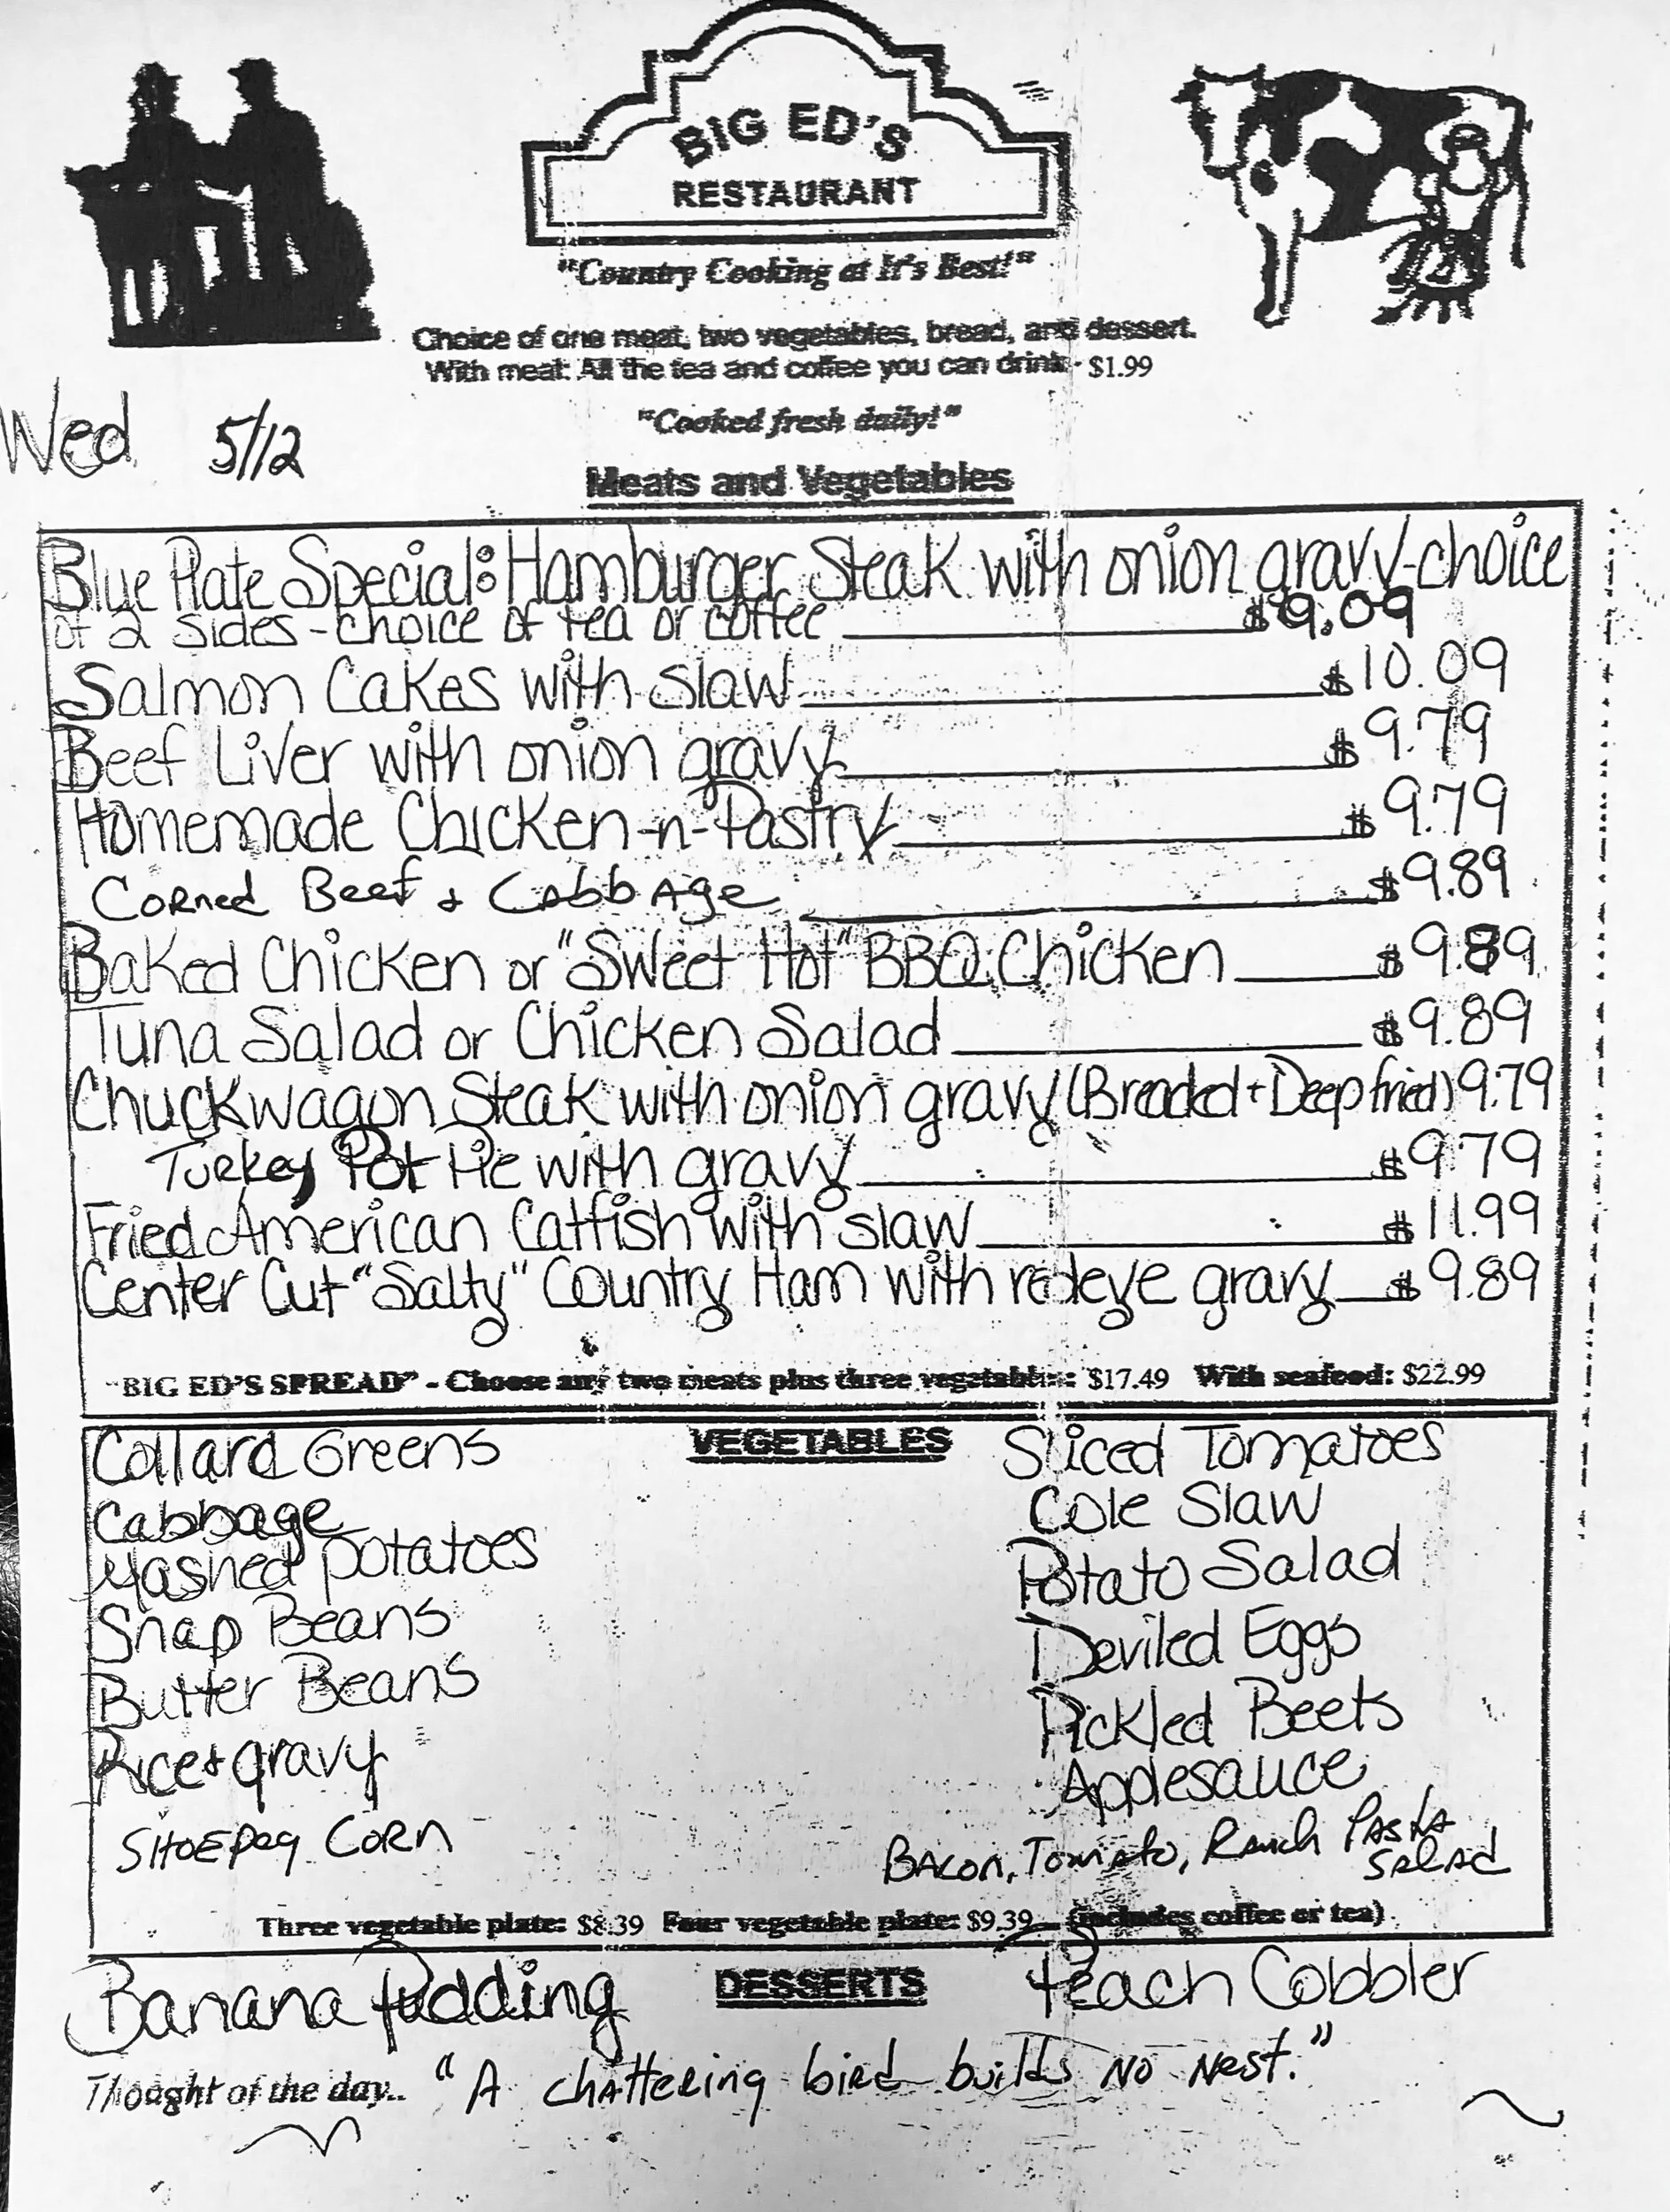 BIG ED'S
RESTAURANT
"Country Cooking at It's Best!"
Choice of one meat, two vegetables, bread, and dessert.
With meat: All the tea and coffee you can drink - $1.99
"Cooked fresh daily!"
Wed 5/12
Meats and Vegetables
Blue Plate Special: Hamburger Steak with onion gravy-choice
of 2 sides - choice of tea or coffee $9.09
Salmon Cakes with slaw $10.09
Beef Liver with onion gravy $9.79
Homemade Chicken-n-Pastry $9.79
Corned Beef & Cabbage $9.89
Baked Chicken or "Sweet Hot" BBQ Chicken $9.89
Tuna Salad or Chicken Salad $9.89
Chuckwagon Steak with onion gravy (Breaded + Deep fried) 9.79
Turkey Pot Pie with gravy $9.79
Fried American Catfish with slaw $11.99
Center Cut "Salty" Country Ham with redeye gravy $9.89
"BIG ED'S SPREAD" - Choose any two meats plus three vegetables: $17.49 With seafood: $22.99
VEGETABLES
Collard Greens
Cabbage
Mashed potatoes
Snap Beans
Butter Beans
Rice & gravy
SHOEpeg CORN
Sliced Tomatoes
Cole Slaw
Potato Salad
Deviled Eggs
Pickled Beets
Applesauce
Bacon, Tomato, Ranch Pasta
Salad
Three vegetable plate: $8.39 Four vegetable plate: $9.39 (includes coffee or tea)
DESSERTS
Banana Pudding
Peach Cobbler
Thought of the day.. "A chattering bird builds no nest."